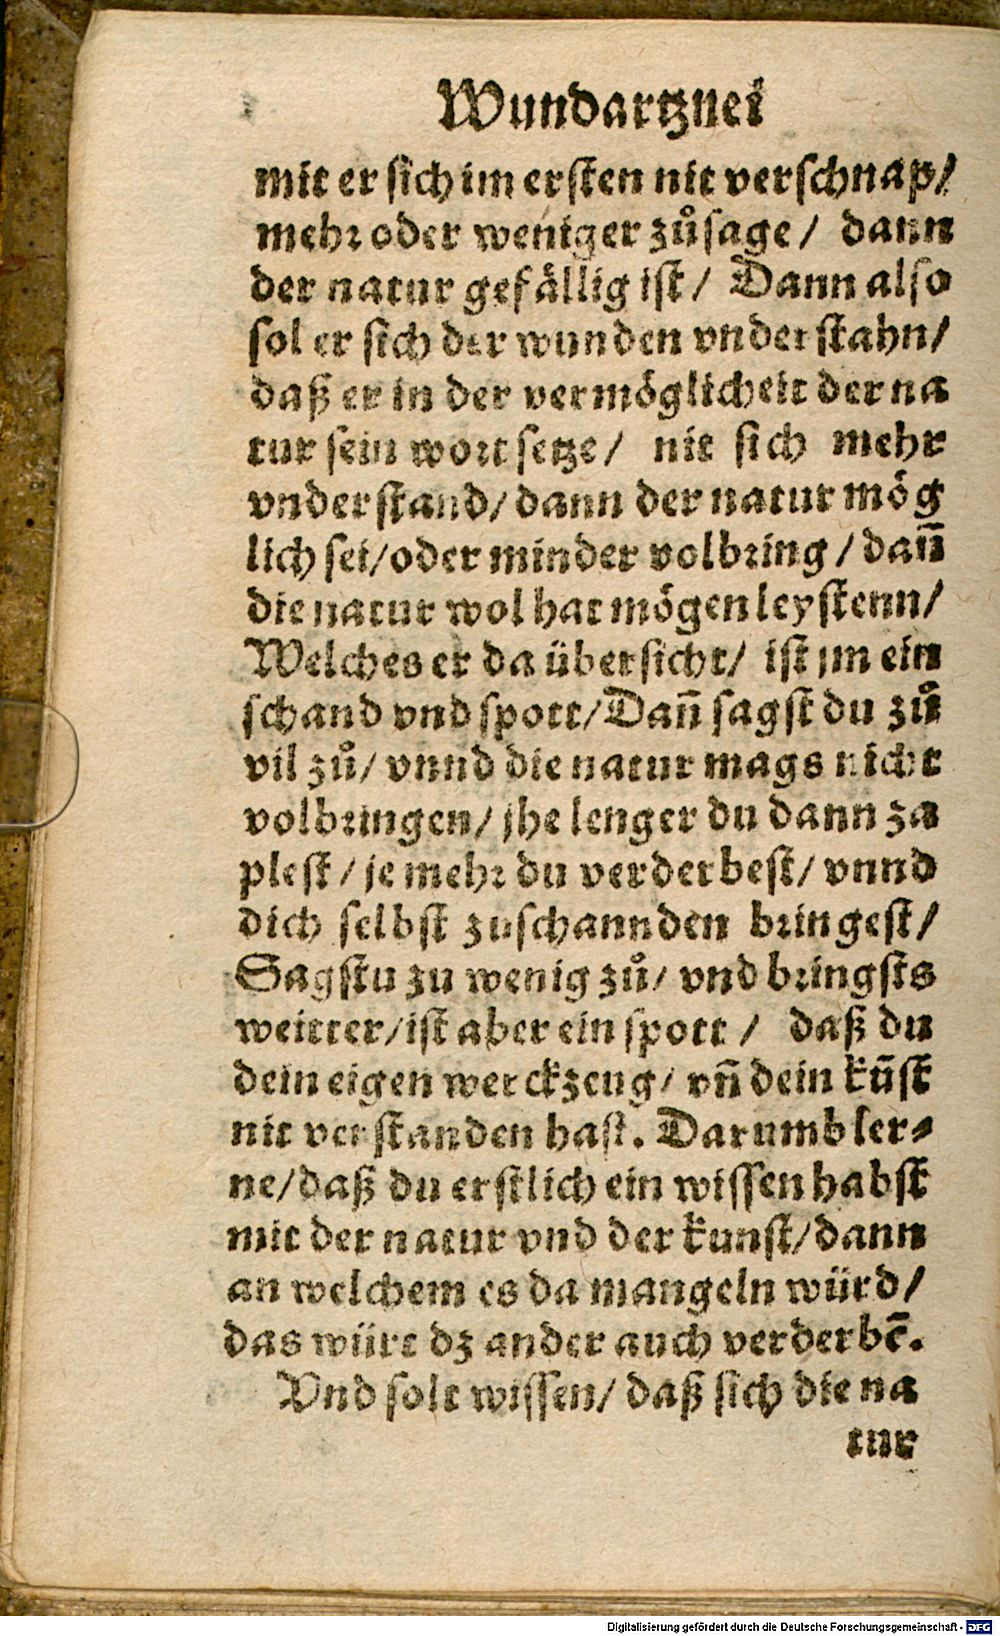 Wundartznei
mit er sich im ersten nit verschnap/
mehr oder weniger zůsage/ dann
der natur gefällig ist/ Dann also
sol er sich der wunden vnderstahn/
daß er in der vermöglicheit der na
tur sein wort setze/ nit sich mehr
vnderstand/ dann der natur mög
lich sei/ oder minder volbring/ dañ
die natur wol hat mögen leystenn/
Welches er da übersicht/ ist jm ein
schand vnd spott/ Dañ sagst du zů
vil zů/ vnnd die natur mags nicht
volbringen/ jhe lenger du dann za
plest/ je mehr du verderbest/ vnnd
dich selbst zuschannden bringest/
Sagstu zu wenig zů/ vnd bringsts
weitter/ ist aber ein spott/ daß du
dein eigen werckzeug/ vñ dein kūst
nit verstanden hast. Darumb ler⸗
ne/ daß du erstlich ein wissen habst
mit der natur vnd der kunst/ dann
an welchem es da mangeln würd/
das würt dz ander auch verderbē.
Vnd solt wissen/ daß sich die na
tur
Digitalisierung gefördert durch die Deutsche Forschungsgemeinschaft - DFG